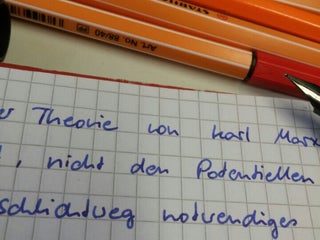 STABILO
Art. No. 88/40
Theorie von Karl Marx
, nicht den Potentiellen
schlichtweg notwendiges